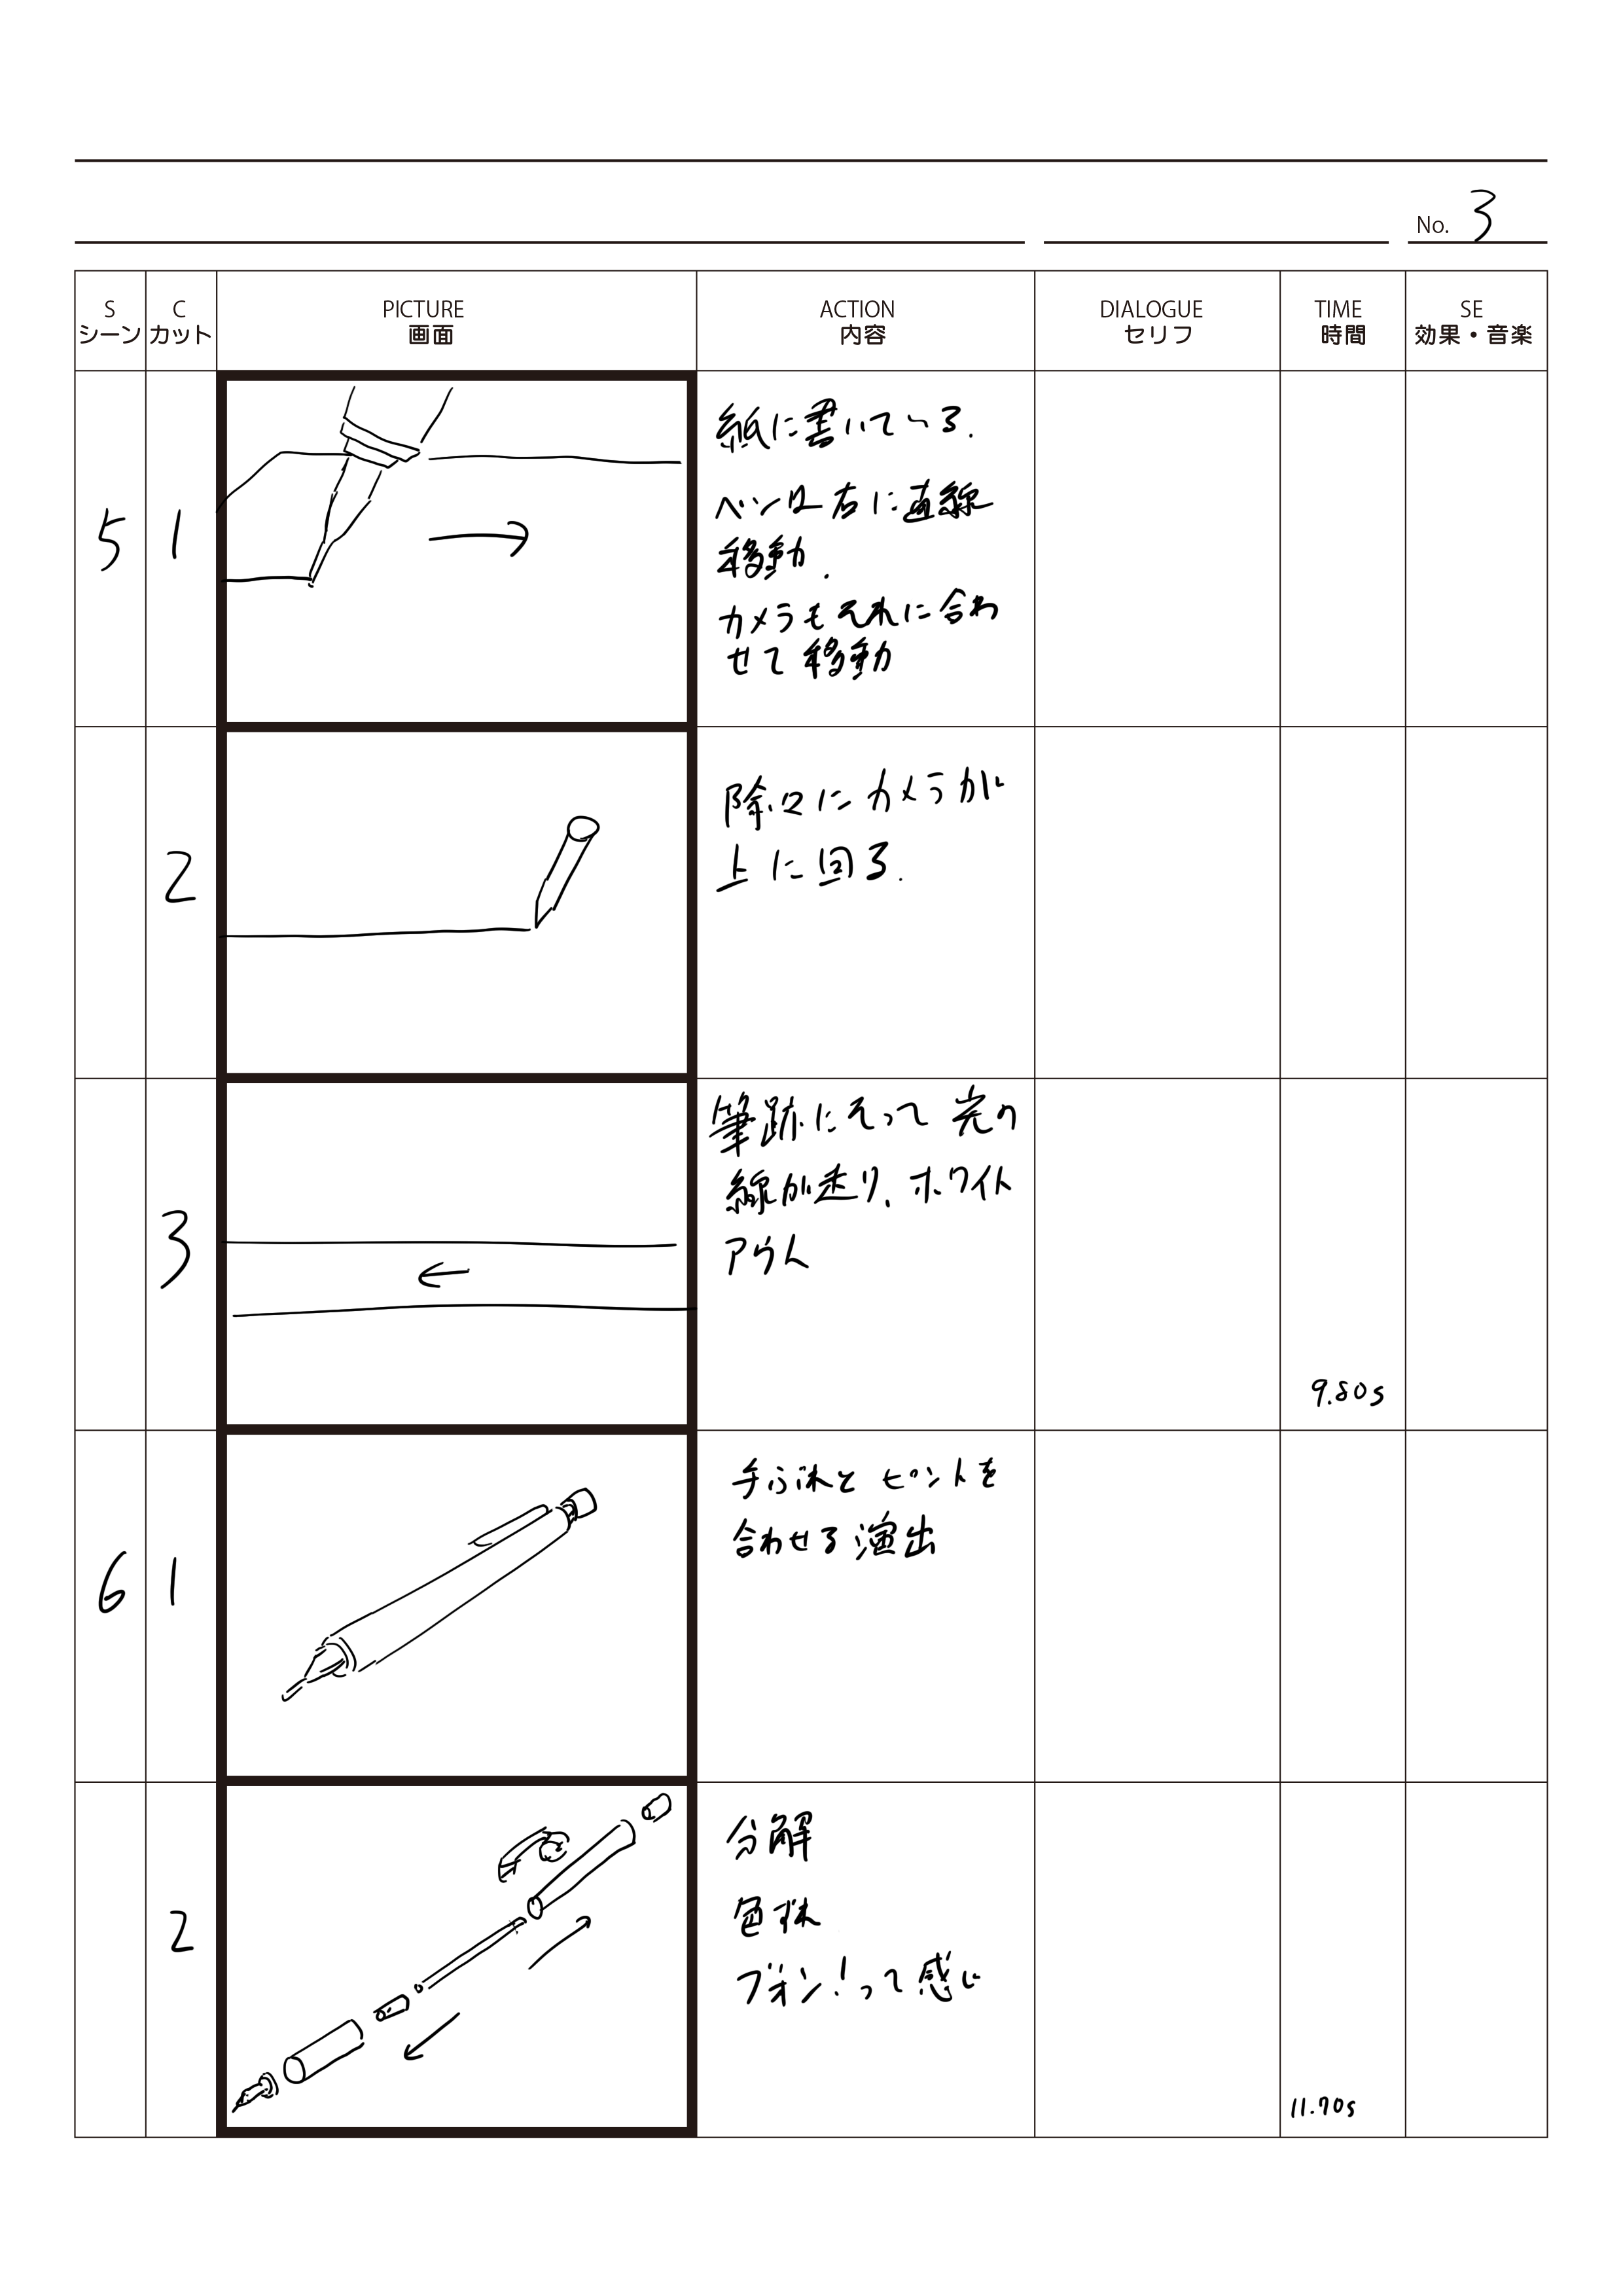 No. 3
S
シーン
C
カット
PICTURE
画面
ACTION
内容
DIALOGUE
セリフ
TIME
時間
SE
効果・音楽
5
1
紙に書いている.
ペンは右に直線
移動.
カメラもそれに合わ
せて移動
2
除々にカメラが
上に回る.
3
筆跡にそって光の
線が走り、ホワイト
アウト
9.80s
6
1
手ぶれとピントを
合わせる演出
2
分解
色ずれ
ブオン!って感じ
11.70s